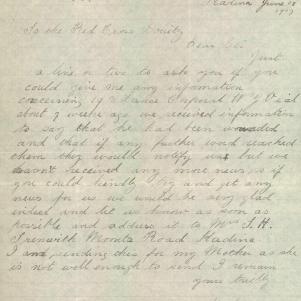 Kadina June 18
1917
To the Red Cross Society
Dear Sir
Just
a line or two to ask you if you
could give me any information
concerning 19 Lance Corporal W J Dial
about 7 weeks ago we received information
to say that he had been wounded
and that if any further word reached
them they would notify us but we
haven't received any more news so if
you could kindly try and get any
news for us we would be very glad
indeed and let us know as soon as
possible and address it to Mrs J. H.
Trenwith Moonta Road Kadina
I am sending this for my Mother as she
is not well enough to send I remain
yours truly